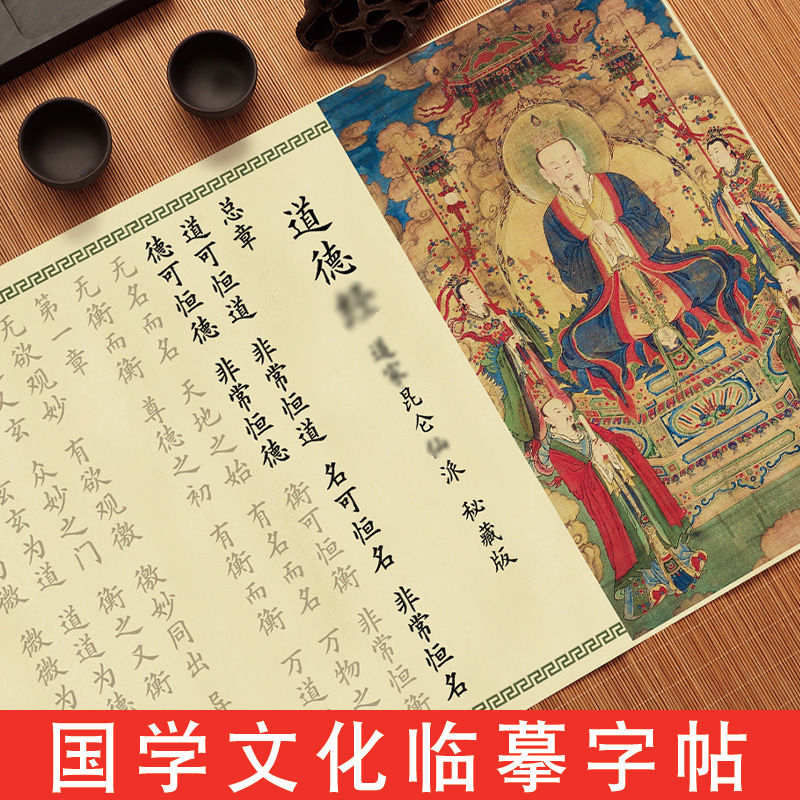 道德经
道家昆仑仙派 秘藏版
总章
道可恒道 非常恒道 名可恒名 非常恒名
德可恒德 非常恒德 衡可恒衡 非常恒衡
无名而名 天地之始 有名而名 万物之
无衡而衡 尊德之初 有衡而衡 万道
第一章
无欲观妙 有欲观徼 徼妙同出 异
又玄 众妙之门 衡之又衡
玄玄为道 道道为德
微 微微为
国学文化临摹字帖